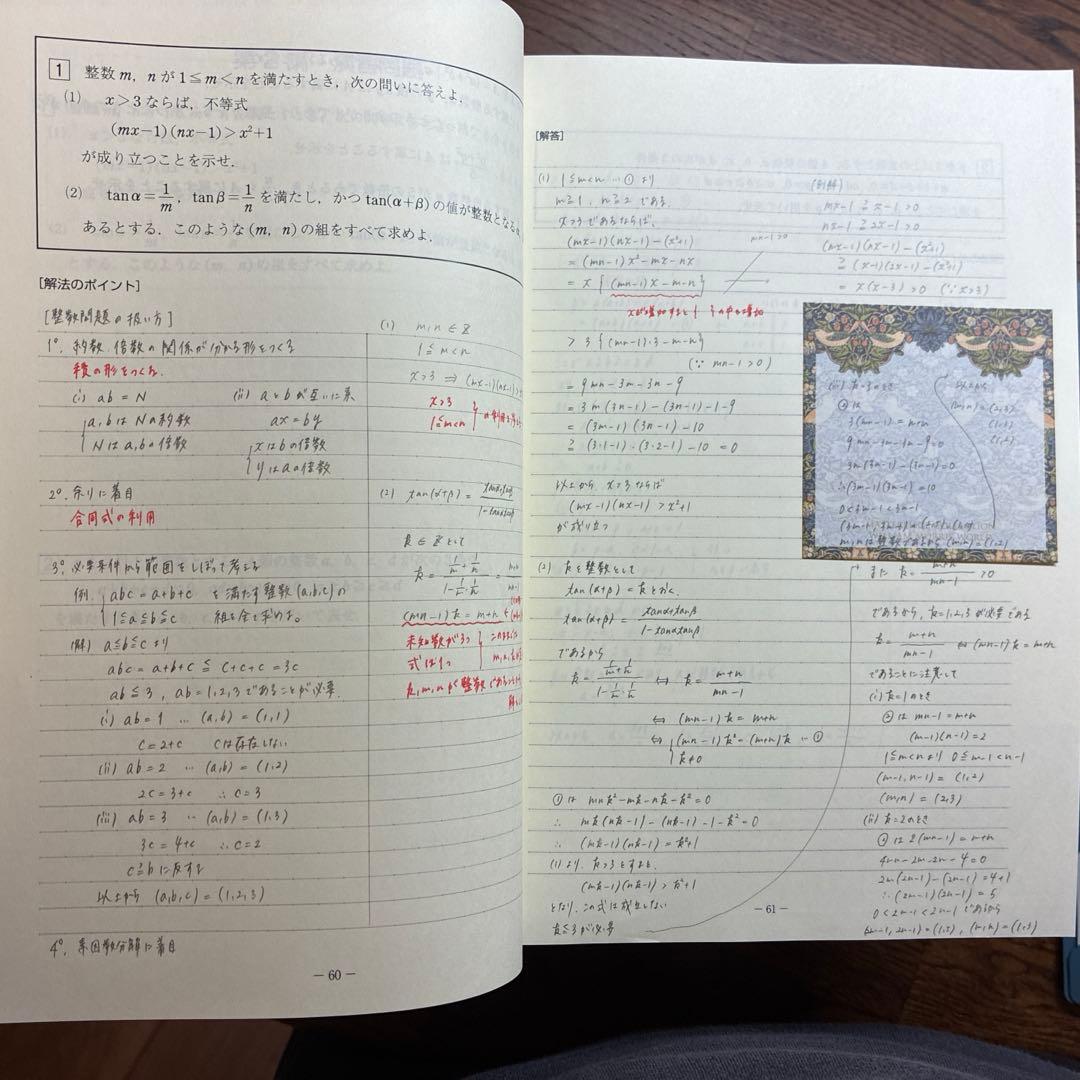 1 整数m, nが1≦m<nを満たすとき, 次の問いに答えよ.
(1) x>3ならば, 不等式
(mx−1)(nx−1)>x²+1
が成り立つことを示せ.
(2) tanα=1/m, tanβ=1/nを満たし, かつtan(α+β)の値が整数となる
あるとする. このような(m, n)の組をすべて求めよ.
[解法のポイント]
[整数問題の扱い方]
1°. 約数, 倍数の関係が分かる形をつくる
積の形をつくる.
(i) ab = N
a, bはNの約数
Nはa, bの倍数
(ii) aとbが互いに素
ax = by
xはbの倍数
yはaの倍数
2°. 余りに着目
合同式の利用
3°. 必要条件から範囲をしぼって考える
例. abc = a+b+c を満たす整数(a,b,c)の
1≦a≦b≦c 組を全て求めよ.
(解) a≦b≦cより
abc = a+b+c ≦ c+c+c = 3c
ab≦3, ab=1,2,3であることが必要.
(i) ab=1 … (a,b)=(1,1)
c=2+c cは存在しない
(ii) ab=2 … (a,b)=(1,2)
2c=3+c ∴c=3
(iii) ab=3 … (a,b)=(1,3)
3c=4+c ∴c=2
c≧bに反する
以上から (a,b,c)=(1,2,3)
4°. 素因数分解に着目
(1) m,n∈Z
1≦m<n
x>3 ⇒ (mx−1)(nx−1)>
x>3
1≦m<n
(2) tan(α+β) = (tanα+tanβ)/(1−tanαtanβ)
k∈Zとして
k = (1/m+1/n)/(1−1/m・1/n) =
(mn−1)k = m+n
未知数が3つ
式は1つ
k,m,nが整数である
− 60 −
[解答]
(1) 1≦m<n …① より
m≧1, n≧2 である.
x>3であるならば,
(mx−1)(nx−1)−(x²+1)
= (mn−1)x²−mx−nx
= x{(mn−1)x−m−n}
mn−1>0
xが増加すると{ }の中も増加
> 3{(mn−1)・3−m−n}
(∵ mn−1>0)
= 9mn−3m−3n−9
= 3m(3n−1)−(3n−1)−1−9
= (3m−1)(3n−1)−10
≧ (3・1−1)(3・2−1)−10 = 0
以上から, x>3ならば
(mx−1)(nx−1)>x²+1
が成り立つ
(別解)
mx−1≧x−1>0
nx−1≧2x−1>0
(mx−1)(nx−1)−(x²+1)
≧(x−1)(2x−1)−(x²+1)
= x(x−3)>0 (∵x>3)
(2) kを整数として
tan(α+β)=kとおく.
tan(α+β) = (tanα+tanβ)/(1−tanαtanβ)
であるから
k = (1/m+1/n)/(1−1/m・1/n) ⇔ k = (m+n)/(mn−1)
⇔ (mn−1)k = m+n
⇔ (mn−1)k²=(m+n)k …①
k≠0
①は mnk²−mk−nk−k²=0
∴ mk(nk−1)−(nk−1)−1−k²=0
∴ (mk−1)(nk−1)=k²+1
(1)より, k>3とすると,
(mk−1)(nk−1)>k²+1
となり, この式は成立しない
k≦3が必要
また k = (m+n)/(mn−1) >0
であるから, k=1,2,3が必要である
k = (m+n)/(mn−1) ⇔ (mn−1)k = m+n
であることに注意して
(i) k=1のとき
②は mn−1=m+n
(m−1)(n−1)=2
1≦m<nより 0≦m−1<n−1
(m−1,n−1)=(1,2)
(m,n)=(2,3)
(ii) k=2のとき
②は 2(mn−1)=m+n
4mn−2m−2n−4=0
2m(2n−1)−(2n−1)=4+1
∴(2m−1)(2n−1)=5
0<2m−1<2n−1であるから
(2m−1, 2n−1)=(1,5), (m,n)=(1,3)
(iii) k=3のとき
②は
3(mn−1)=m+n
9mn−3m−3n−9=0
3m(3n−1)−(3n−1)=10
∴(3m−1)(3n−1)=10
0<3m−1<3n−1
m,nは整数であるから (m,n)=(1,2)
以上から
(m,n)=(2,3)
(1,3)
(1,2)
− 61 −